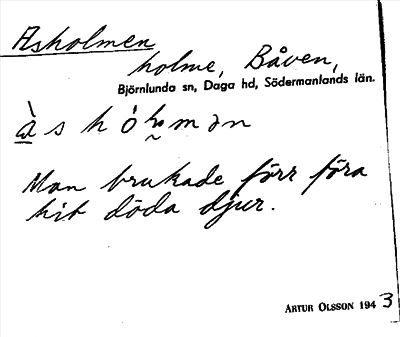 Äsholmen
holme, Båven,
Björnlunda sn, Daga hd, Södermanlands län.
Man brukade förr föra
hit döda djur.
ARTUR OLSSON 1943